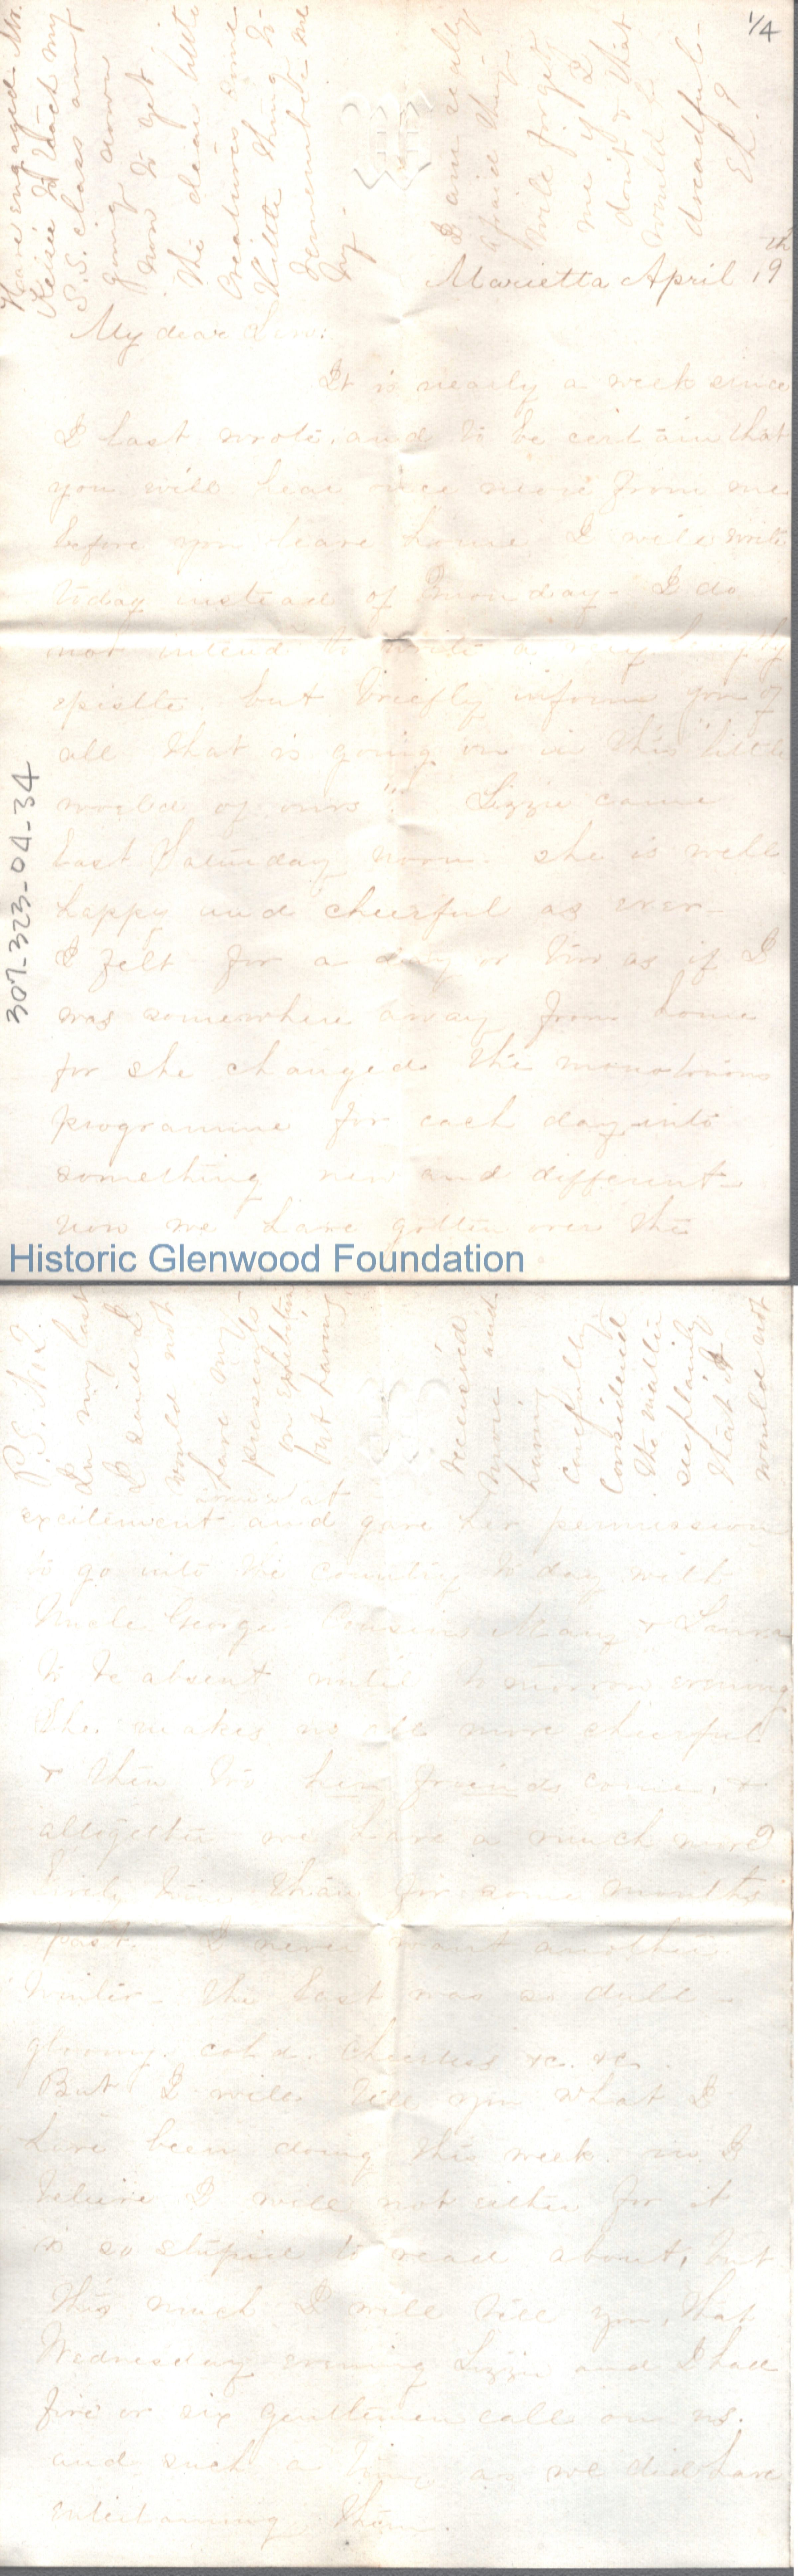 1/4
Have engaged Mr.
to teach my
S. S. class am
going down
now to get
the dear little
creatures some
little thing to
remember me
by.
I am really
afraid they
will forget
me if I
don't & that
would be
dreadful.
Marietta April 19th
My dear
It is nearly a week since
I last wrote, and to be certain that
you will hear once more from me
before you leave home I will write
today instead of Monday. I do
not intend to write a very lengthy
epistle, but briefly inform you of
all that is going on in this "little
world of ours". Lizzie came
last Saturday noon. She is well
happy and cheerful as ever—
I felt for a day or two as if I
was somewhere away from home
for she changed the monotonous
programme for each day into
something new and different—
now we have gotten over the
307-323-04-34
Historic Glenwood Foundation
P.S. No 2.
In my last
I said I
would not
have my
presents
on exhibition
but having
received
more and
having
carefully
considered
the matter
see plainly
that it
would not
excitement and gave her permission
to go into the country to day with
Uncle George Cousin Mary & Laura
to be absent until tomorrow evening
She makes us all more cheerful
& then too her friends come, &
altogether we have a much more
lively time than for some months
past. I never want another
winter— the last was so dull—
gloomy, cold, cheerless &c. &c.
But I will tell you what I
have been doing this week. no I
believe I will not either for it
is so stupid to read about, but
this much I will tell you, that
Wednesday evening Lizzie and I had
five or six gentlemen call on us.
and such a time as we did have
entertaining them.